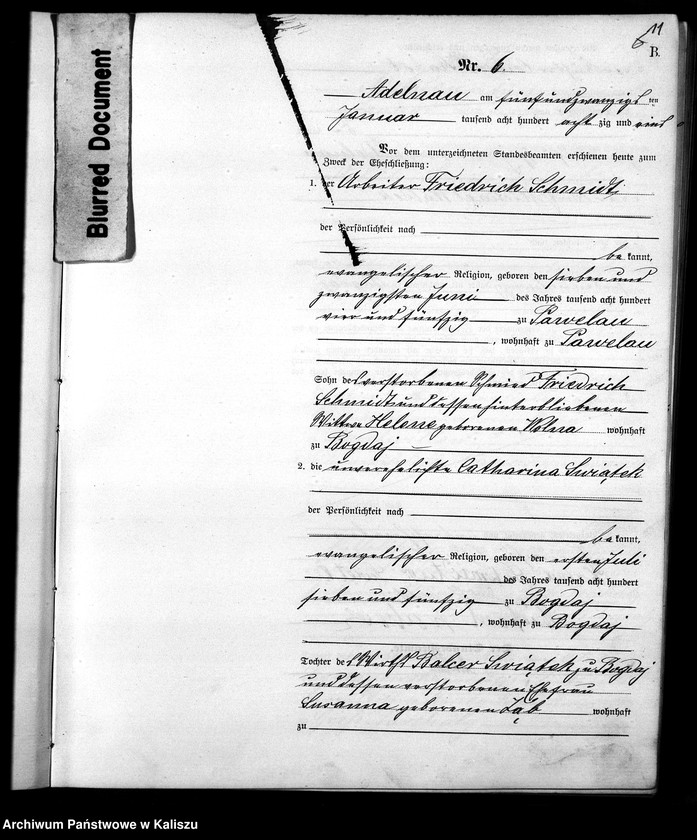 Blurred Document
11
6
B.
Nr. 6.
Adelnau am fünfundzwanzigsten
Januar tausend acht hundert achtzig und eins
Vor dem unterzeichneten Standesbeamten erschienen heute zum
Zweck der Eheschließung:
1. der Arbeiter Friedrich Schmidt,
der Persönlichkeit nach
bekannt,
evangelischer Religion, geboren den sieben und
zwanzigsten Juni des Jahres tausend acht hundert
vier und fünfzig zu Pawelau
, wohnhaft zu Pawelau
Sohn des verstorbenen Schmied Friedrich
Schmidt und dessen hinterbliebenen
Wittwe Helene geborenen Wolna wohnhaft
zu Bogdaj
2. die unverehelichte Catharina Swiątek
der Persönlichkeit nach
bekannt,
evangelischer Religion, geboren den ersten Juli
des Jahres tausend acht hundert
sieben und fünfzig zu Bogdaj
, wohnhaft zu Bogdaj
Tochter des Wirths Balcer Swiątek zu Bogdaj
und dessen verstorbenen Ehefrau
Susanna geborenen Ząb wohnhaft
zu
Archiwum Państwowe w Kaliszu